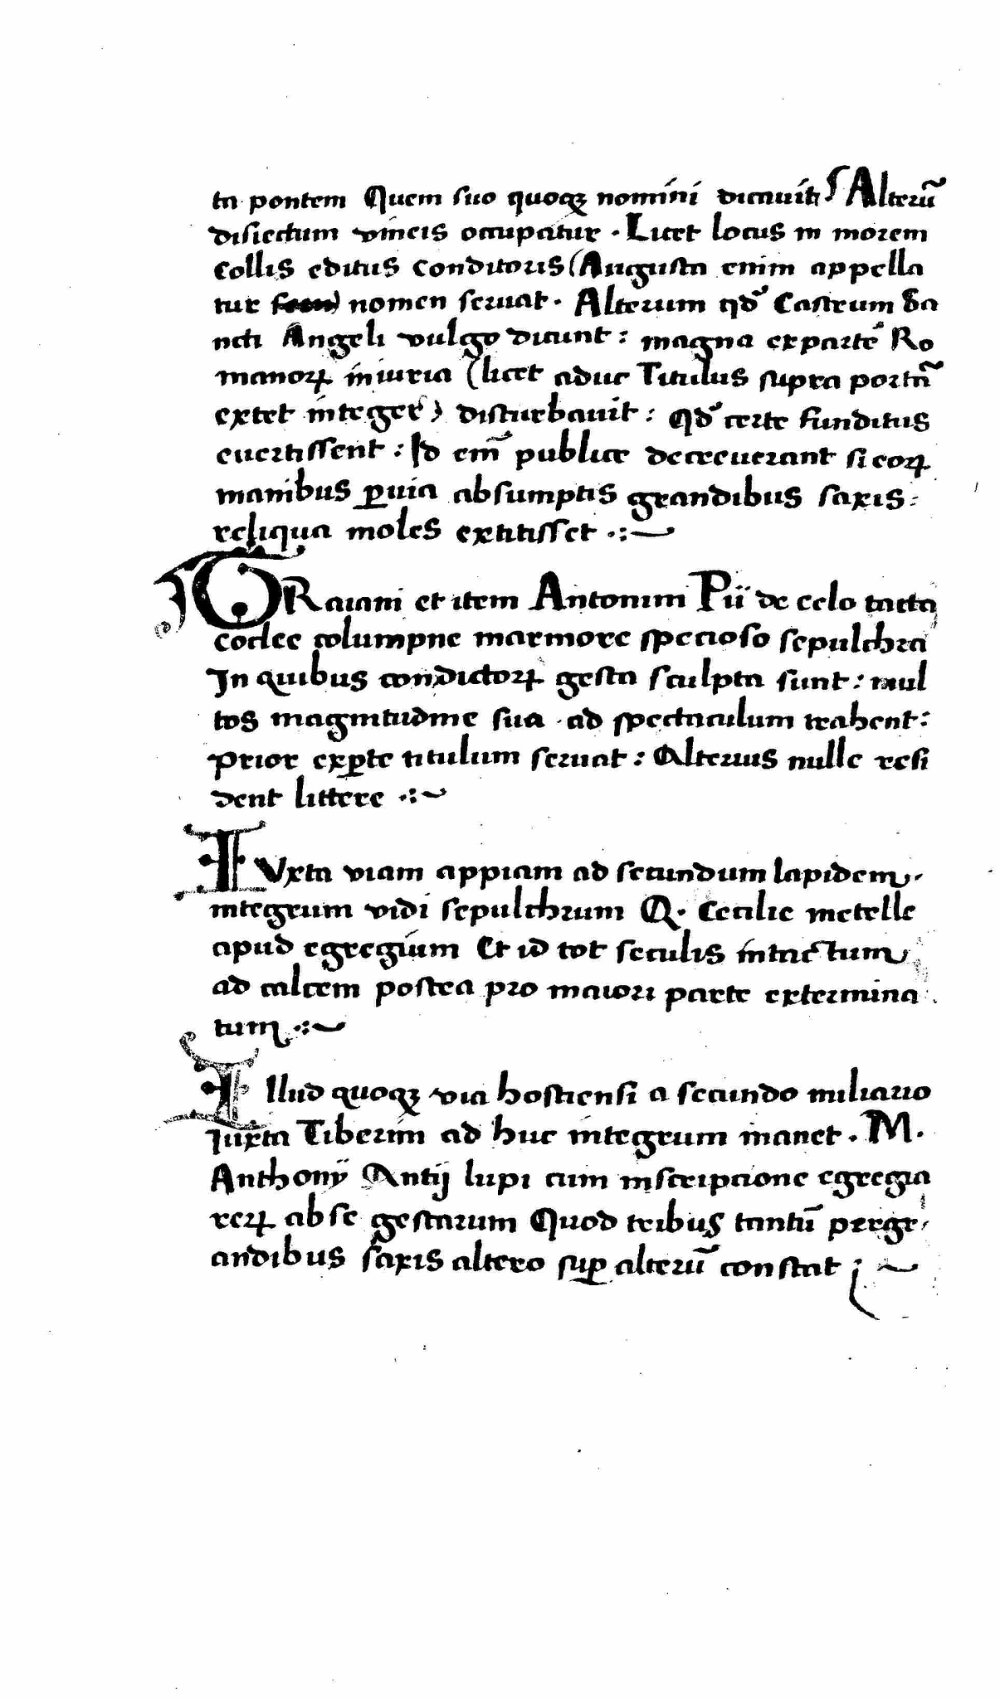 ta pontem Quem suo quoqꝫ nomini dicauit: Alterū
disiectum vineis occupatur . Licet locus in morem
collis editus conditoris (Augusta enim appella
tur) nomen seruat . Alterum qđ Castrum Sa
ncti Angeli vulgo dicunt : magna exparte Ro
manorꝝ iniuria (licet aduc Titulus supra portā
extet integer) disturbauit : Qđ certe funditus
euertissent : Id em̄ publice decreuerant si eorꝝ
manibus ꝑuia absumptis grandibus saxis :
reliqua moles extitisset .:~
TRaiani et item Antonini Pii de celo tacta
coclee columpne marmore specioso sepulchra
In quibus conditorꝝ gesta sculpta sunt : mul
tos magnitudine sua ad spectaculum trahent :
Prior exꝑte titulum seruat : Alterius nulle resi
dent littere .:~
IVxta viam appiam ad secundum lapidem .
integrum vidi sepulchrum Q . Cecilie metelle
apud egregium Et id tot seculis intactum
ad calcem postea pro maiori parte extermina
tum .:~
Illud quoqꝫ via hostiensi a secundo miliario
Iuxta Tiberim ad huc integrum manet . M .
Anthonij Antij lupi cum inscripcione egregia
rerꝝ ab se gestarum Quod tribus tantū pergr
andibus saxis altero suꝑ alterū constat ; ~